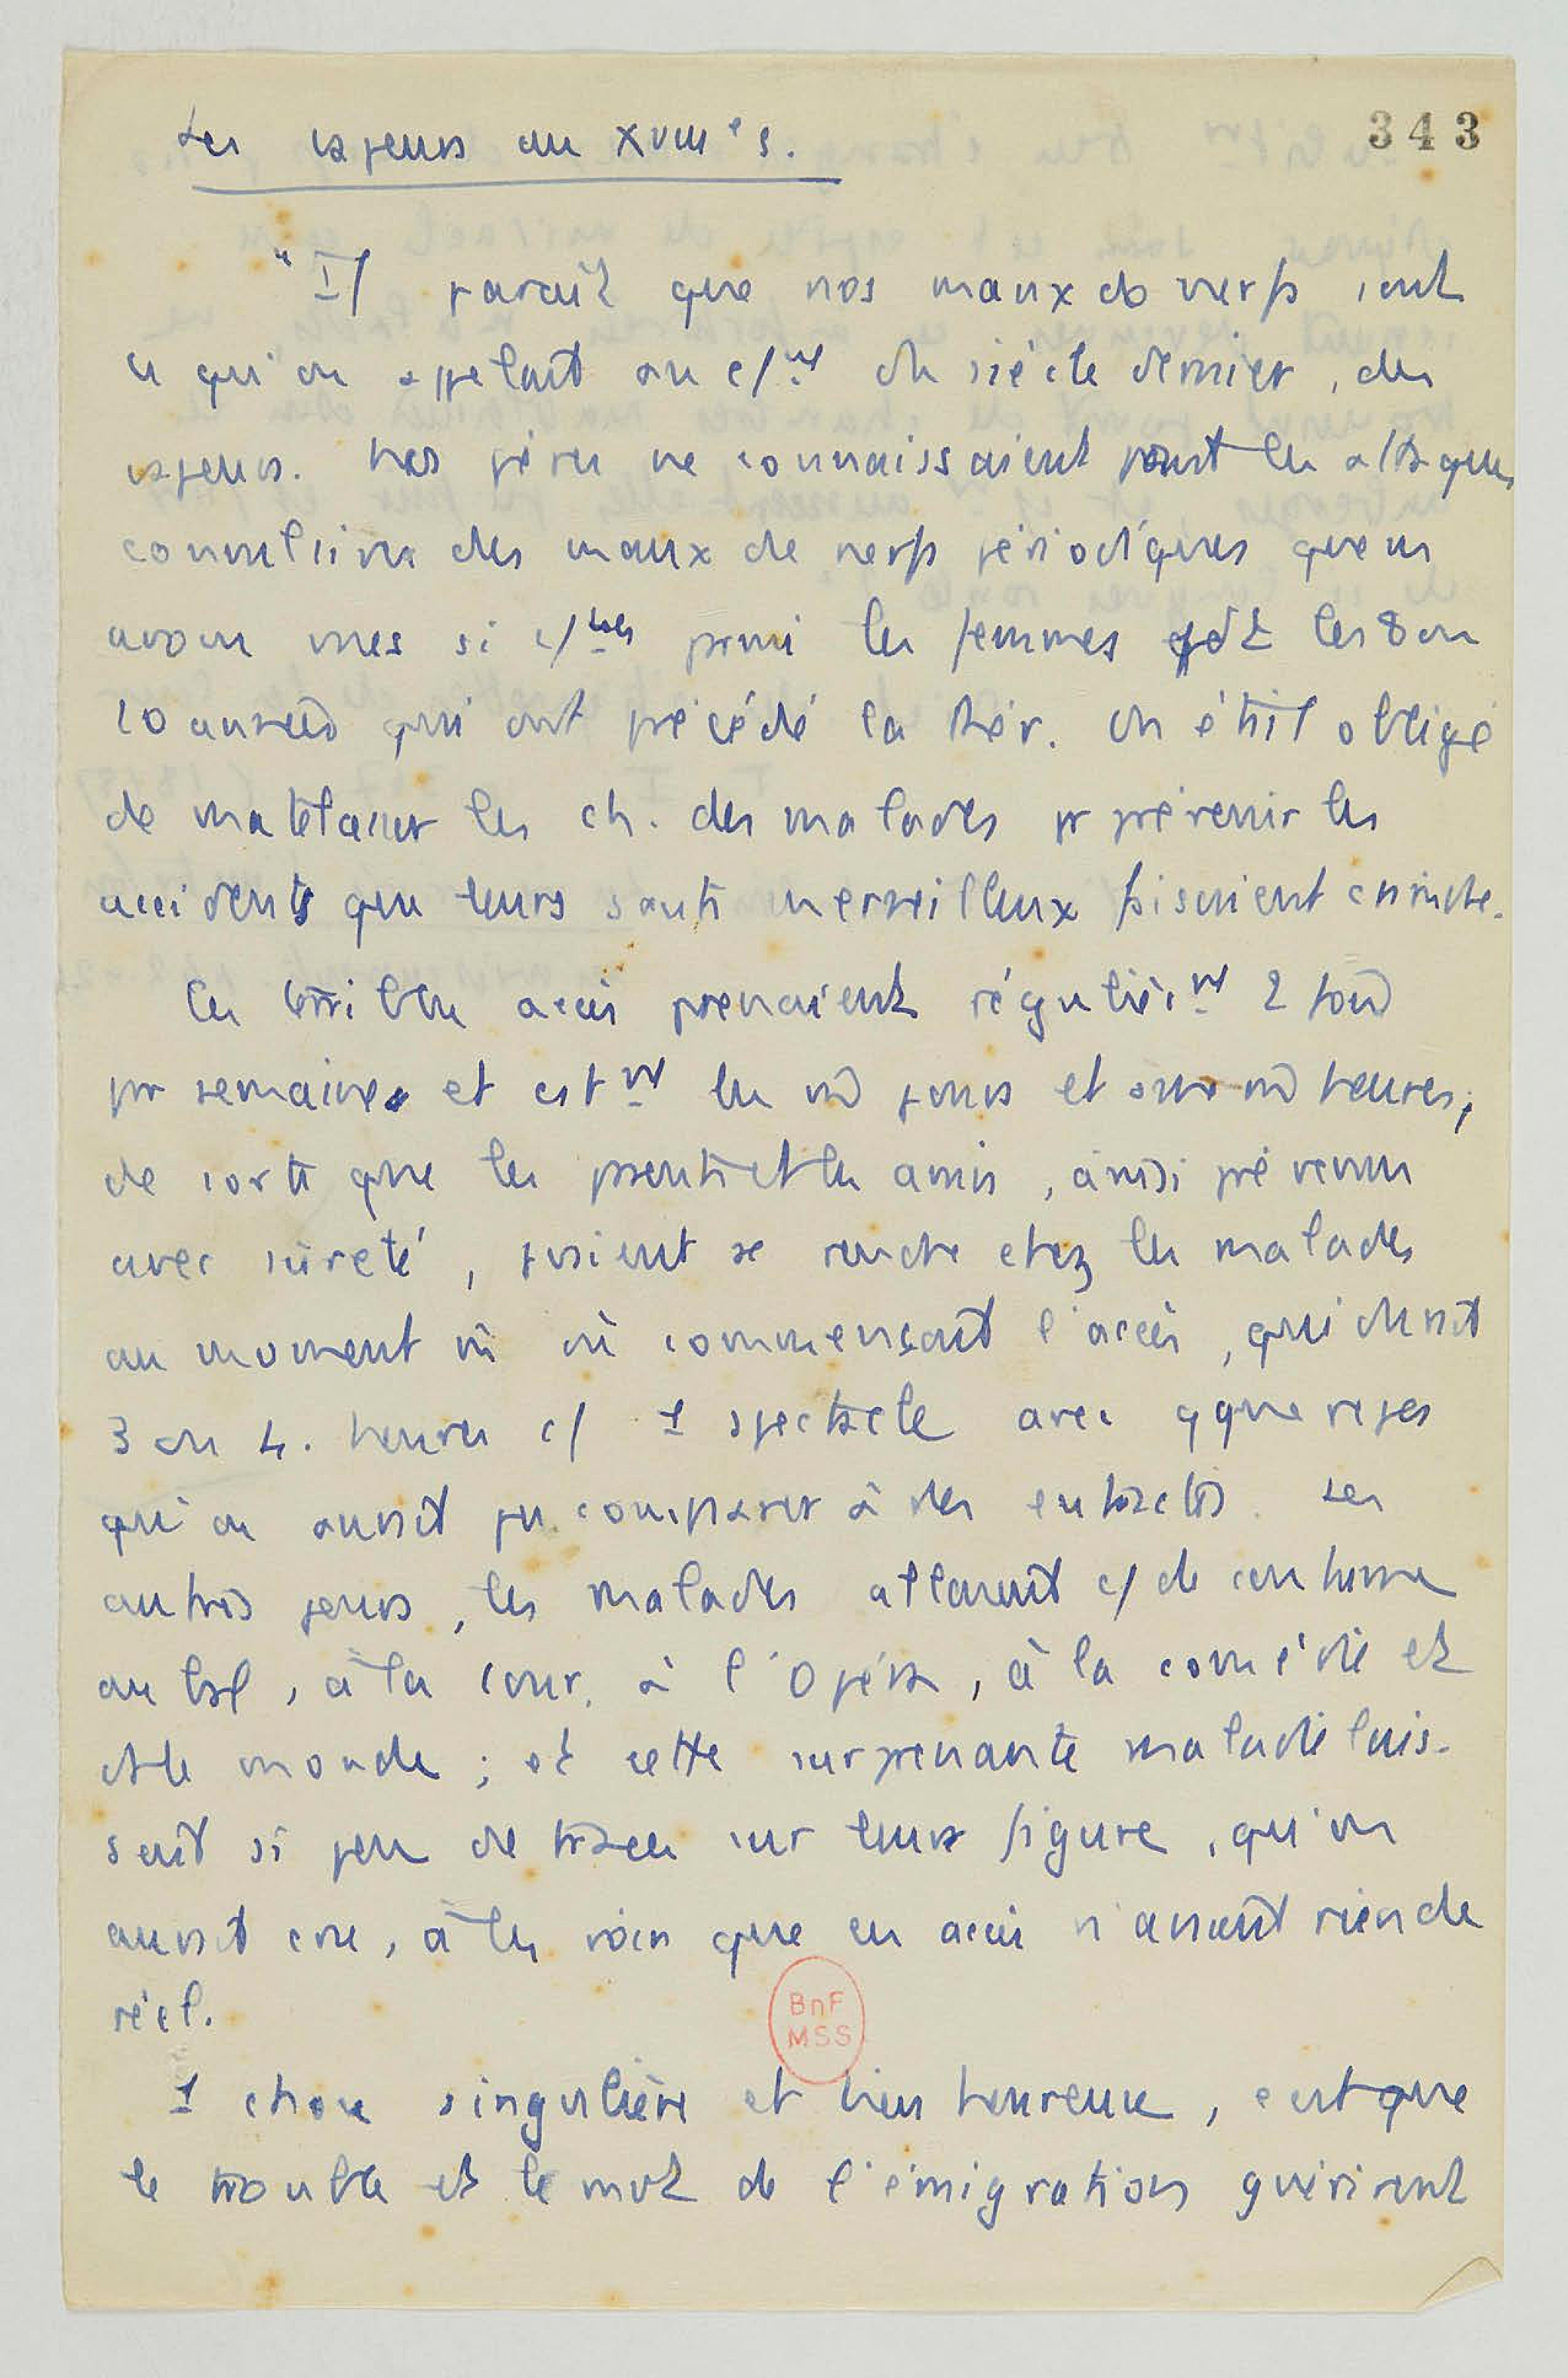 343
Les vapeurs au XVIIIe s.
"Il paraît que nos maux de nerfs sont
ce qu'on appelait au c/mt du siècle dernier, des
vapeurs. Nos pères ne connaissaient point les attaques
convulsives des maux de nerfs périodiques que ns
avons vues si c/nes parmi les femmes pdt les 8 ou
10 années qui ont précédé la Rév. On était obligé
de matelasser les ch. des malades pr prévenir les
accidents que leurs sauts merveilleux faisaient craindre.
Ces terribles accès prenaient régulièrmt 2 fois
par semaine et cstmt les m̂ jours et aux m̂ heures,
de sorte que les parents et les amis, ainsi prévenus
avec sûreté, pouvaient se rendre chez les malades
au moment où commençait l'accès, qui durait
3 ou 4. heures c/ 1 spectacle avec qques repos
qu'on aurait pu comparer à des entractes. Les
autres jours, les malades allaient c/ de coutume
au bal, à la cour, à l'Opéra, à la comédie et
ds le monde ; et cette surprenante maladie lais-
sait si peu de traces sur leurs figure, qu'on
aurait cru, à les voir que ces accès n'avaient rien de
réel.
1 chose singulière et bien heureuse, c'est que
le trouble et le mvt de l'émigration guérirent
BnF
MSS